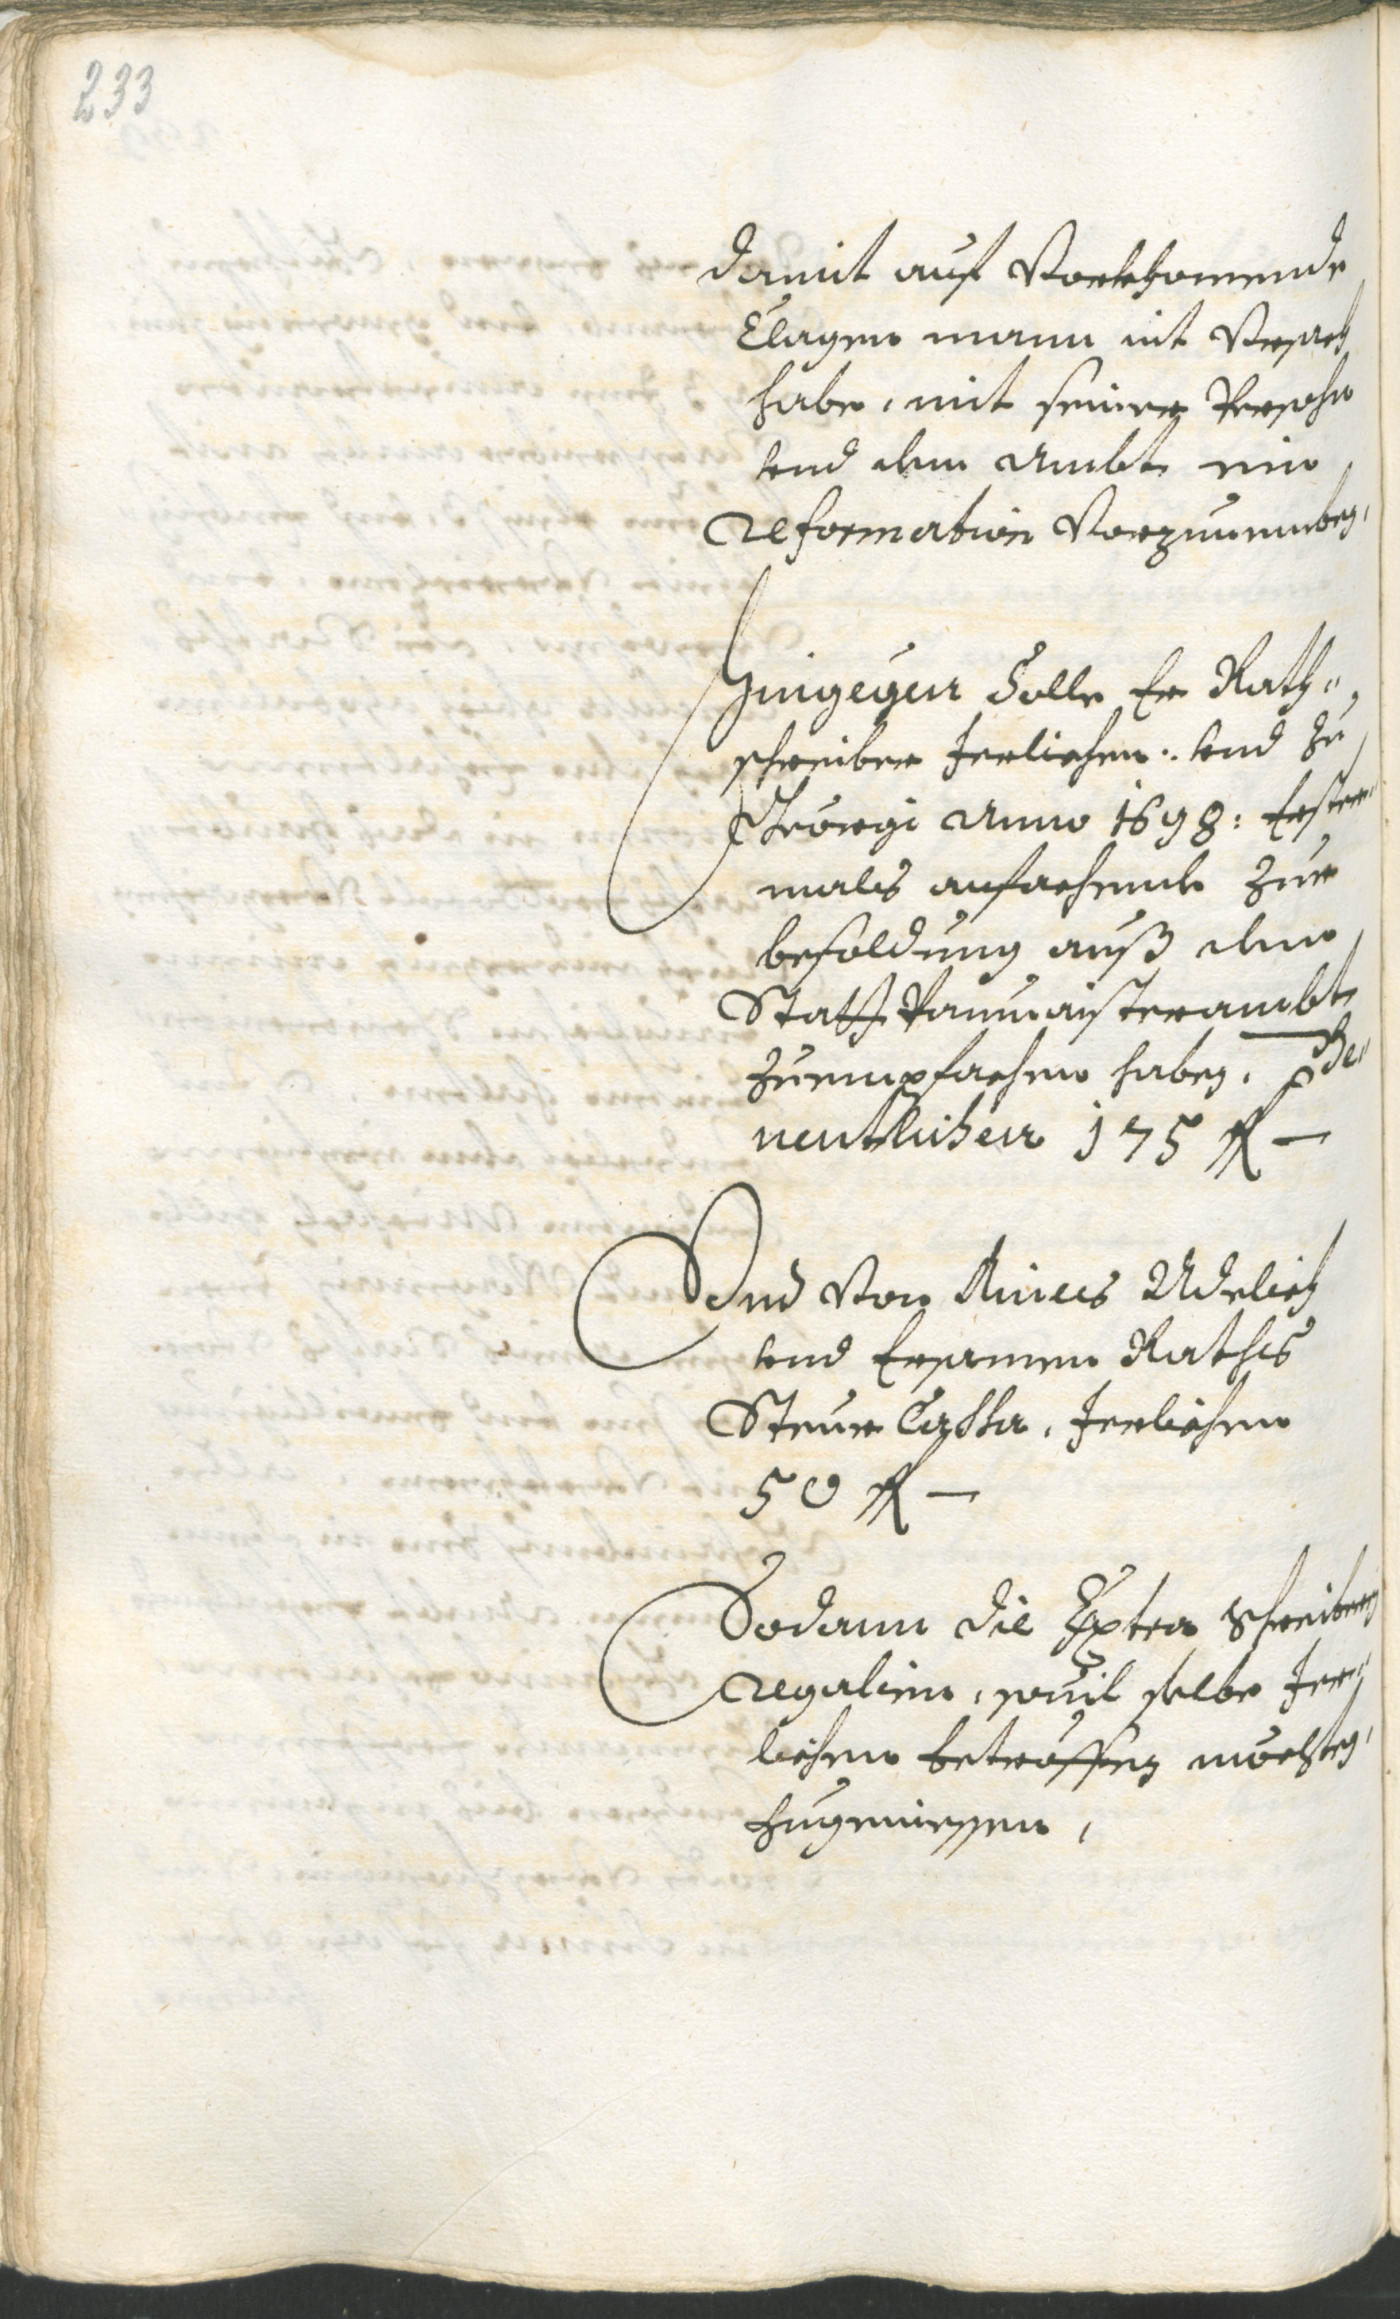 233
damit auf Vorkhomende
Clagen mann nit Vrsach
habe, mit seiner Persohn
vnd dem Ambt ein
reformation Vorzunemben,
Hingegen Solle Er Rath„
schreiber Jerlichen. vnd zu
Georgi Anno 1698: Erster„
mals anfachent zur
besoldung auß dem
Statt Paumaisterambt
zuempfachen haben,
nentlichen 175 fl —
Vnd Von Aines Adelich
vnd Ersamen Raths
Steur Cassa, Jerlichen
50 fl —
Sodann die Extra schreiberey
regalien, souil selbe Jer„
lichen betröffen möchten,
zugeniessen,